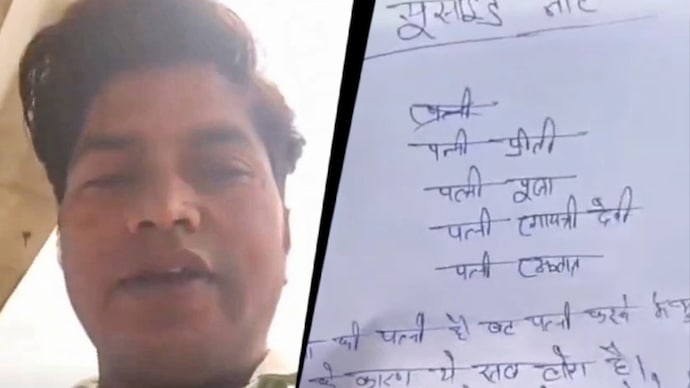 सूसाईड नोट
पत्नी
पत्नी प्रीती
पत्नी पूजा
पत्नी गायत्री देवी
पत्नी
की पत्नी है। पत्नी करके
के कारण ये सब लोग है।